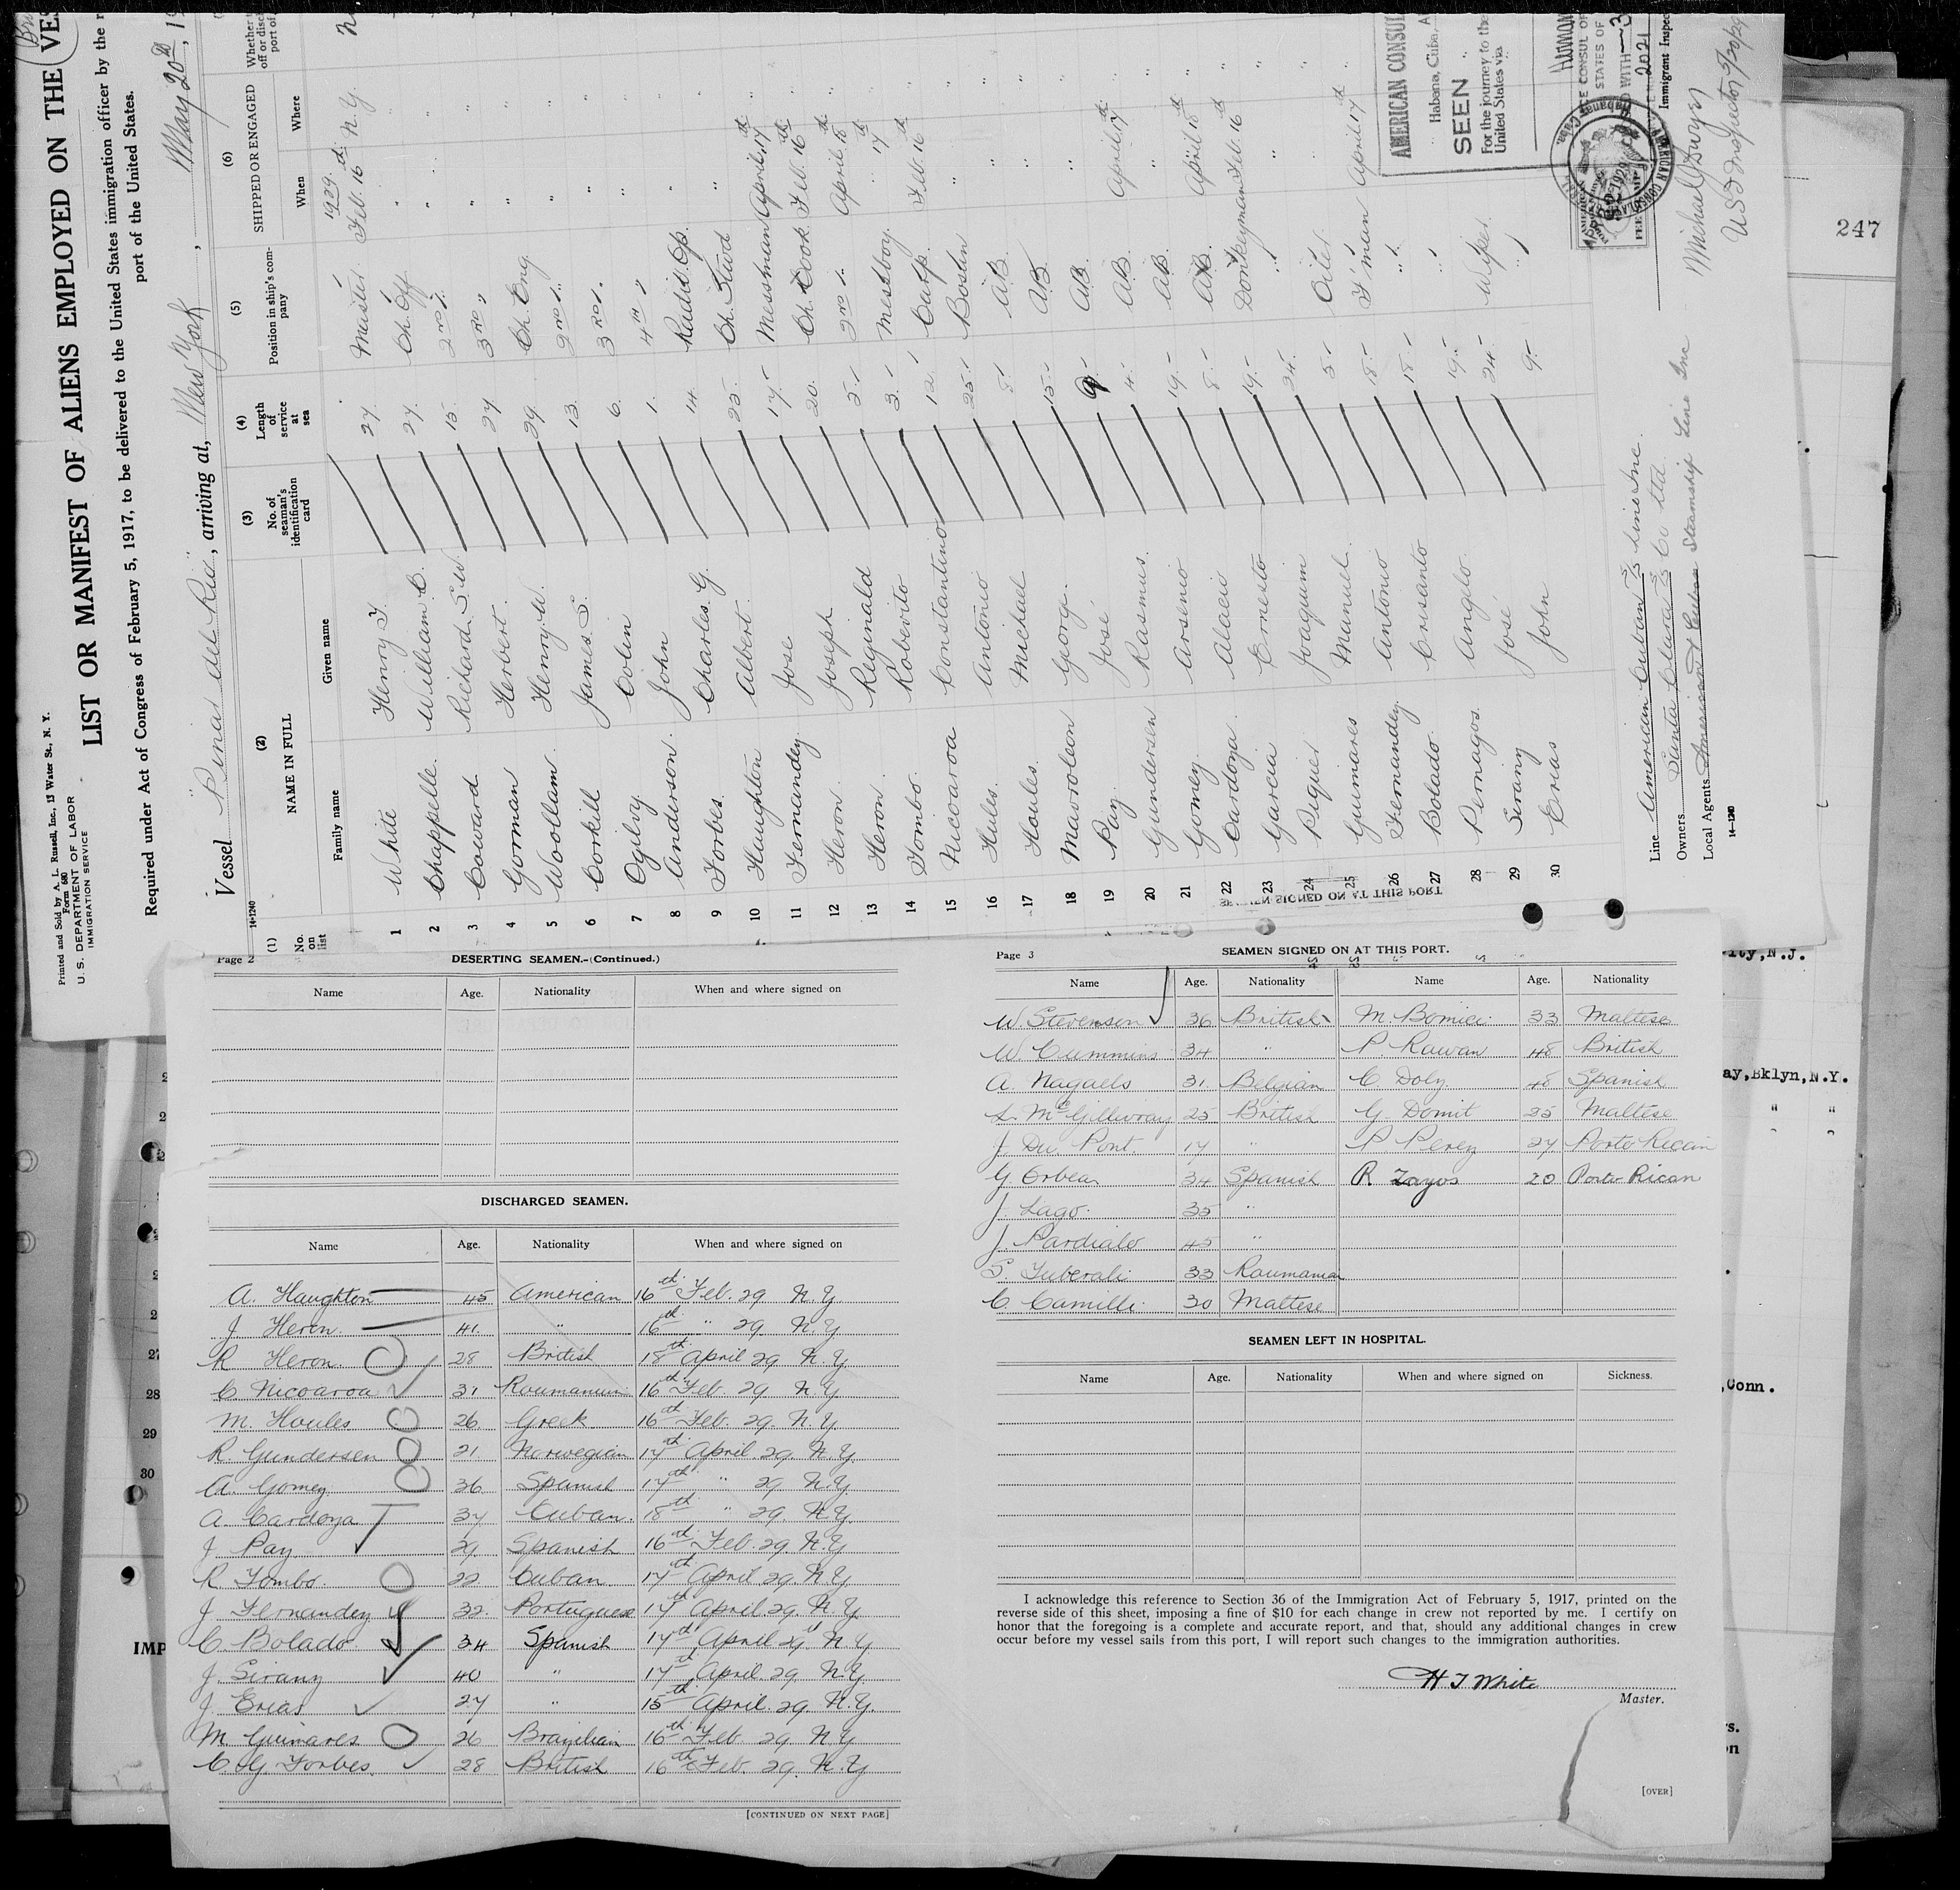 Printed and Sold by A. L. Russell, Inc., 13 Water St., N. Y.
Form 680
U. S. DEPARTMENT OF LABOR
IMMIGRATION SERVICE
LIST OR MANIFEST OF ALIENS EMPLOYED ON THE VES
Required under Act of Congress of February 5, 1917, to be delivered to the United States immigration officer by the r
port of the United States.
Vessel "Pinar del Rio", arriving at, New York, May 20th, 1
14-1240
(1) (2) (3) (4) (5) (6)
No. on list
NAME IN FULL
Family name Given name
No. of seaman's identification card
Length of service at sea
Position in ship's company
SHIPPED OR ENGAGED
When Where
Whether
off or disc
port of
1929.
1 White Henry T. 27. Master Feb. 16th N. Y.
2 Chappelle William C. 27. Ch. Off " "
3 Coward Richard S. W. 15. 2nd " " "
4 Gorman Herbert 27 3rd " " "
5 Woollam Henry W. 29. Ch. Eng. " "
6 Corkill James S. 13. 2nd " " "
7 Ogilvy Colin 6. 3rd " " "
8 Anderson John 1. 4th " " "
9 Forbes Charles G. 14. Radio Op. " "
10 Haughton Albert 25. Ch. Stwd " "
11 Fernandez Jose 17. Messman April 17th "
12 Heron Joseph 20. Ch. Cook Feb. 16th "
13 Heron Reginald 2nd " April 18th "
14 Tombo Roberito 3. Messboy " 17th "
15 Nicoaroa Constantino 12. Carp. Feb. 16th "
16 Hules Antonio 25. Bosun " "
17 Houles Michael 8. A.B. " "
18 Mavroleon George 15. A.B. " "
19 Pay José 9. A.B. " "
20 Gundersen Rasmus 4. A.B. April 17th "
21 Gomez Arsenio 19. A.B. " "
22 Cardoza Alacio 8. A.B. April 18th "
23 Garcia Ernesto 19. Donkeyman Feb. 16th "
24 Piquer Joaquim 24. " " "
25 Guimares Manuel 5. Oiler " "
26 Fernandez Antonio 18. F'man April 17th "
27 Bolado Crisanto 18. "
28 Pernagos Angelo 19. "
29 Sirany José 24. Wiper
30 Erias John 9. "
Line American Cuban S/S Line Inc.
Owners Santa Clara S/S Co Ltd.
Local Agents American & Cuban Steamship Line Inc
14-1240
AMERICAN CONSUL
Habana, Cuba, A
SEEN
For the journey to the
United States via
E CONSUL OF
STATES OF
2021
Immigrant Inspec
AMERICAN CONSULAR
Habana, Cuba.
FEE
Michael J Dwyer
U S Inspector
247
SEAMEN SIGNED ON AT THIS PORT
Page 2
DESERTING SEAMEN.-(Continued.)
Name Age. Nationality When and where signed on
DISCHARGED SEAMEN.
Name Age. Nationality When and where signed on
A. Haughton 45 American 16th Feb. 29 N. Y.
J Heron. 41. " 16th " 29. N. Y
R Heron. 28 British 18th April 29 N. Y
C Nicoaroa 31 Roumanian 16th Feb. 29 N. Y
M. Houles 26. Greek 16th Feb. 29. N. Y.
R. Gundersen 21. Norwegian 17th April. 29. N. Y.
A. Gomez 36. Spanish 17th " 29 N. Y
A. Cardoza 37 Cuban. 18th " 29. N. Y.
J Pay 29. Spanish 16th Feb. 29. N. Y
R Tombo. 22. Cuban 17th April 29. N. Y
J Fernandez 32. Portuguese 17th April 29. N. Y.
C. Bolado 34 Spanish 17th April 29 N. Y.
J Sirany 40 " 17th April. 29 N. Y
J. Erias 27 " 15th April. 29. N. Y.
M Guimares 26 Brazilian 16th Feb 29 N. Y
C. G Forbes. 28 British 16th Feb. 29. N. Y
[CONTINUED ON NEXT PAGE]
Page 3
SEAMEN SIGNED ON AT THIS PORT.
Name Age. Nationality Name Age. Nationality
W. Stevenson 36 British M. Bomici 33 Maltese
W. Cummins 34 " P. Rawan 48 British
A. Nagaels 31. Belgian C. Doly 48 Spanish
L. McGillivray 25 British G. Domit 25 Maltese
J. Du Pont. 17 " P Perez 27 Porto Rican
G. Orbea 34 Spanish R. Zayos 20 Porto Rican
J. Lago. 35 "
J. Pardialo 45 "
S. Tuberali 33 Roumanian
C. Camilli 30 Maltese
SEAMEN LEFT IN HOSPITAL.
Name Age. Nationality When and where signed on Sickness.
I acknowledge this reference to Section 36 of the Immigration Act of February 5, 1917, printed on the
reverse side of this sheet, imposing a fine of $10 for each change in crew not reported by me. I certify on
honor that the foregoing is a complete and accurate report, and that, should any additional changes in crew
occur before my vessel sails from this port, I will report such changes to the immigration authorities.
H T White
Master.
[OVER]
ity, N.J.
ay, Bklyn, N.Y.
" "
, Conn.
27
28
29
30
IMP
rs.
on